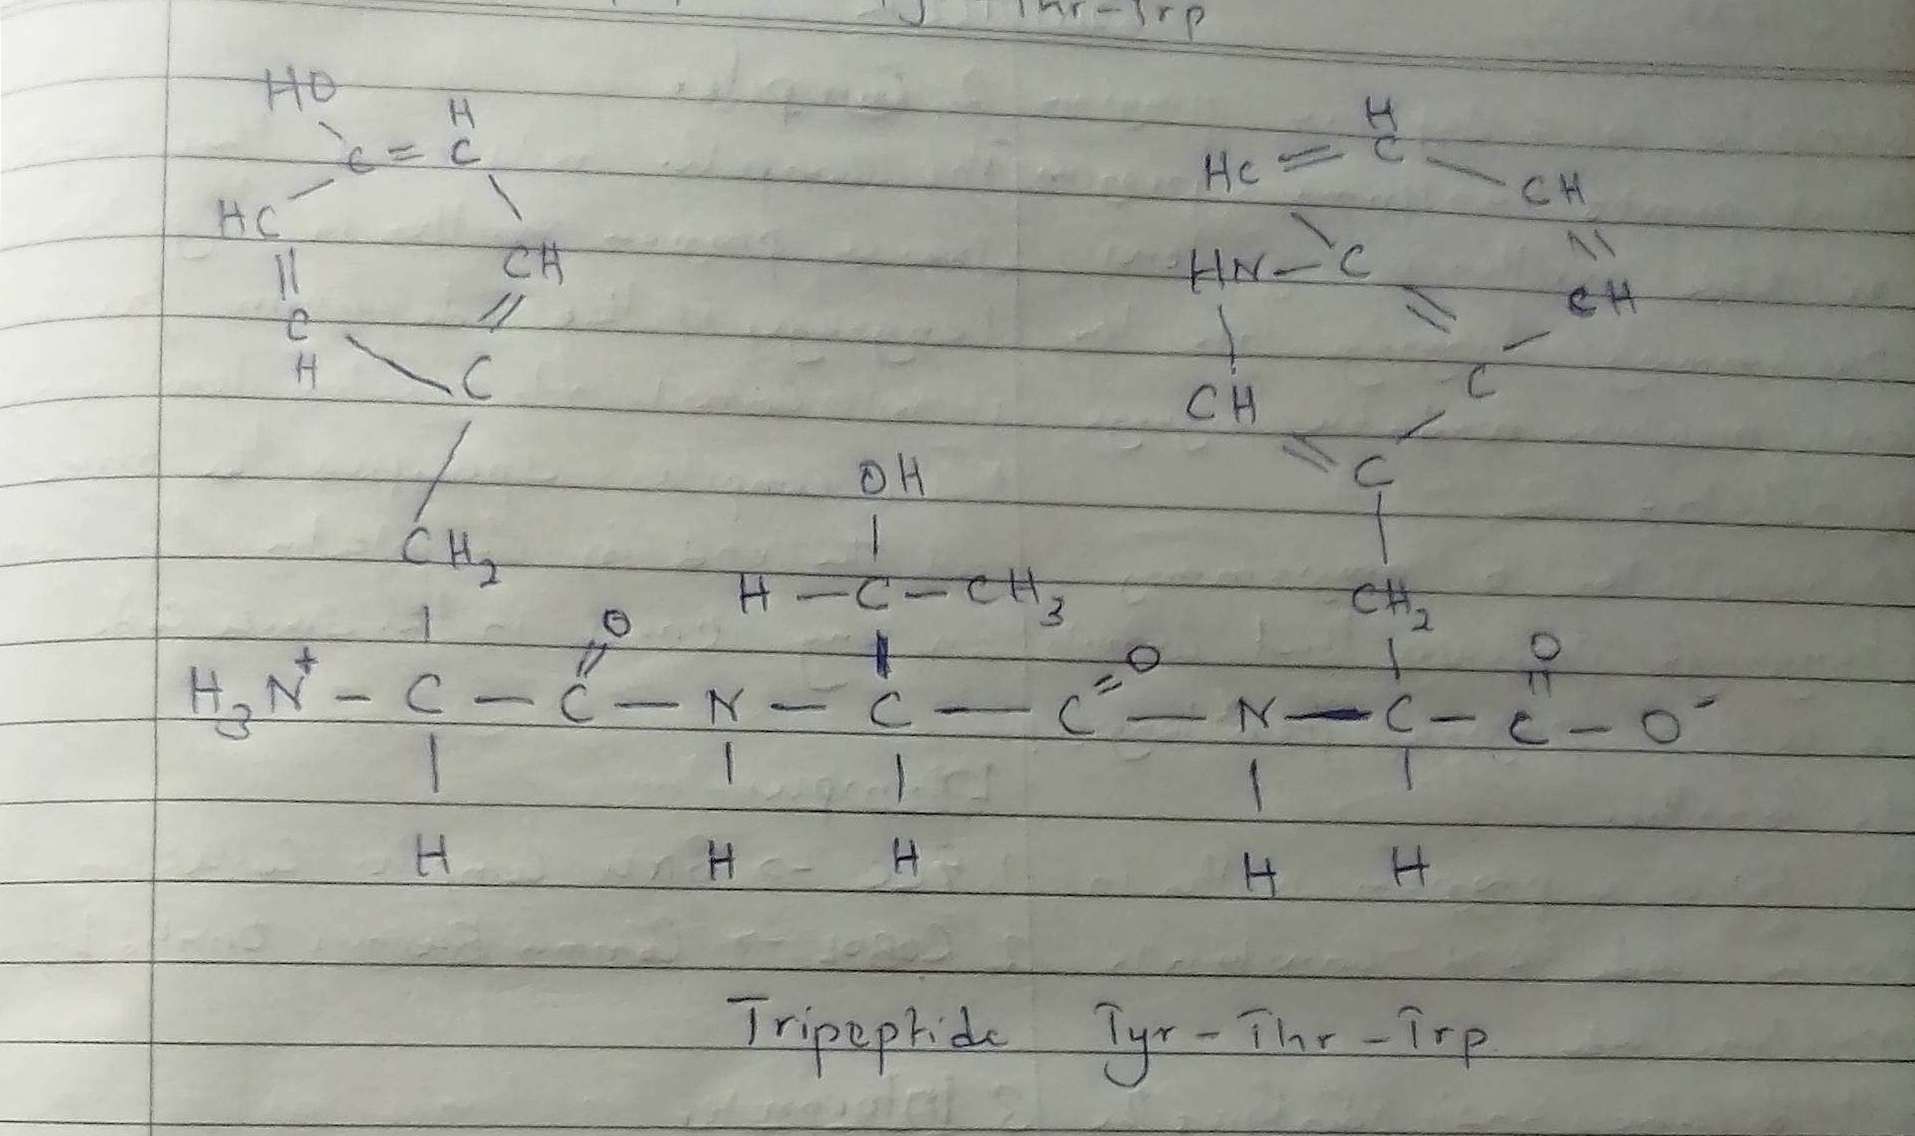 Thr-Trp
HO
H
C = C
HC
CH
C
H
C
CH2
H
HC = C
CH
HN - C
CH
C
CH
C
CH2
OH
H - C - CH3
O
O
O
H3N+ - C - C - N - C - C - N - C - C - O-
H H H H H
Tripeptide Tyr-Thr-Trp